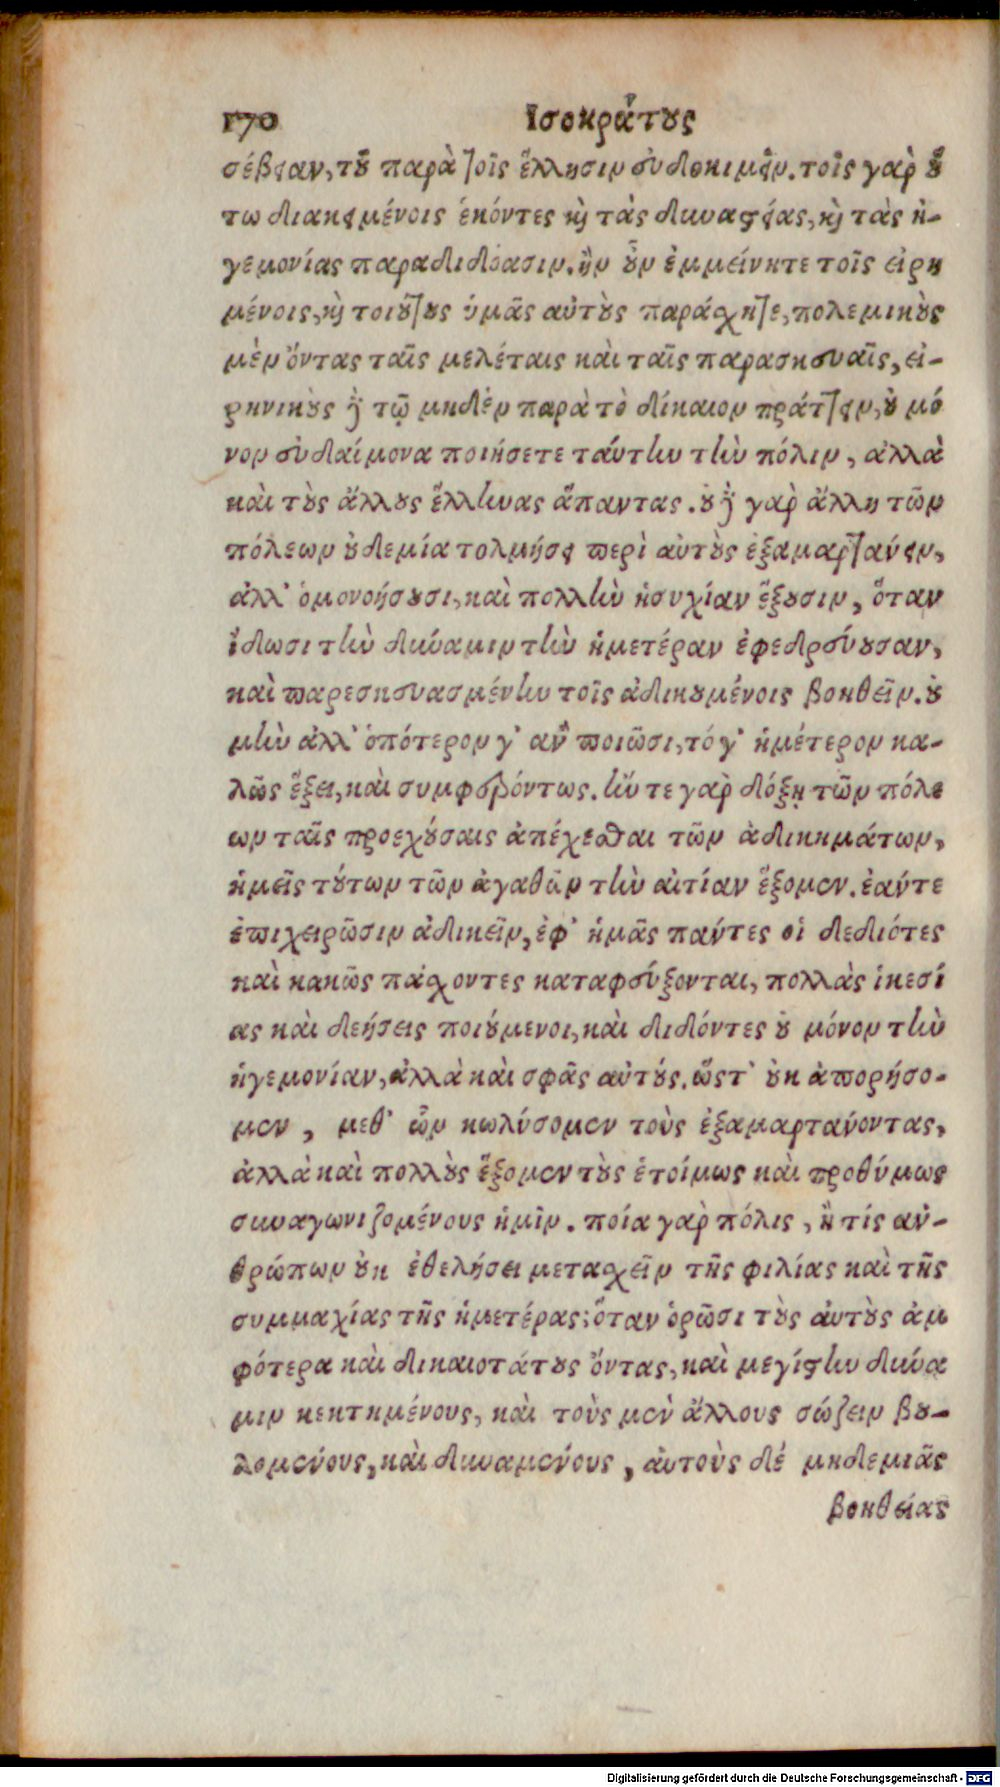 170 Ἰσοκράτους
σέβειαν, τοῦ παρὰ τοῖς ἕλλησιν εὐδοκιμεῖν. τοῖς γὰρ οὕ
τω διακειμένοις ἑκόντες καὶ τὰς δυναστείας, καὶ τὰς ἡ-
γεμονίας παραδιδόασιν. ἢν οὖν ἐμμείνητε τοῖς εἰρη
μένοις, καὶ τοιούτους ὑμᾶς αὐτοὺς παράσχητε, πολεμικοὺς
μὲν ὄντας ταῖς μελέταις καὶ ταῖς παρασκευαῖς, εἰ-
ρηνικοὺς δὲ τῷ μηδὲν παρὰ τὸ δίκαιον πράττειν, οὐ μό
νον εὐδαίμονα ποιήσετε ταύτην τὴν πόλιν, ἀλλὰ
καὶ τοὺς ἄλλους ἕλληνας ἅπαντας. οὐδὲ γὰρ ἄλλη τῶν
πόλεων οὐδεμία τολμήσει περὶ αὐτοὺς ἐξαμαρτάνειν,
ἀλλ' ὁμονοήσουσι, καὶ πολλὴν ἡσυχίαν ἕξουσιν, ὅταν
ἴδωσι τὴν δύναμιν τὴν ἡμετέραν ἐφεδρεύουσαν,
καὶ παρεσκευασμένην τοῖς ἀδικουμένοις βοηθεῖν. οὐ
μὴν ἀλλ' ὁπότερον γ' ἂν ποιῶσι, τό γ' ἡμέτερον κα-
λῶς ἕξει, καὶ συμφερόντως. ἤν τε γὰρ δόξῃ τῶν πόλε
ων ταῖς προεχούσαις ἀπέχεσθαι τῶν ἀδικημάτων,
ἡμεῖς τούτων τῶν ἀγαθῶν τὴν αἰτίαν ἕξομεν. ἐάν τε
ἐπιχειρῶσιν ἀδικεῖν, ἐφ' ἡμᾶς πάντες οἱ δεδιότες
καὶ κακῶς πάσχοντες καταφεύξονται, πολλὰς ἱκεσί
ας καὶ δεήσεις ποιούμενοι, καὶ διδόντες οὐ μόνον τὴν
ἡγεμονίαν, ἀλλὰ καὶ σφᾶς αὐτούς. ὥστ' οὐκ ἀπορήσο-
μεν, μεθ' ὧν κωλύσομεν τοὺς ἐξαμαρτάνοντας,
ἀλλὰ καὶ πολλοὺς ἕξομεν τοὺς ἑτοίμως καὶ προθύμως
συναγωνιζομένους ἡμῖν. ποία γὰρ πόλις, ἢ τίς ἀν-
θρώπων οὐκ ἐθελήσει μετασχεῖν τῆς φιλίας καὶ τῆς
συμμαχίας τῆς ἡμετέρας; ὅταν ὁρῶσι τοὺς αὐτοὺς ἀμ
φότερα καὶ δικαιοτάτους ὄντας, καὶ μεγίστην δύνα
μιν κεκτημένους, καὶ τοὺς μὲν ἄλλους σώζειν βου-
λομένους, καὶ δυναμένους, αὐτοὺς δέ μηδεμιᾶς
βοηθείας
Digitalisierung gefördert durch die Deutsche Forschungsgemeinschaft - DFG